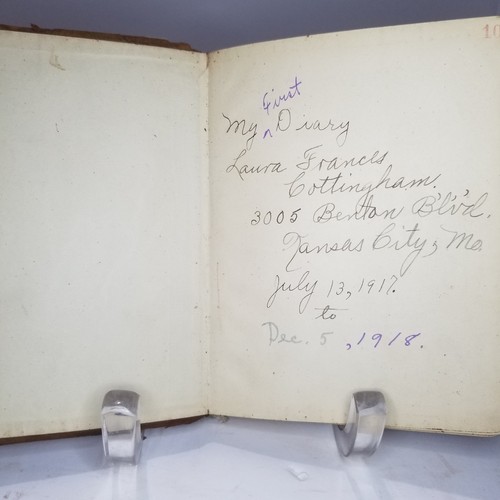 My ^ First Diary
Laura Frances
Cottingham.
3005 Benton B'l'v'd.
Kansas City, Mo.
July 13, 1917.
to
Dec. 5, 1918.